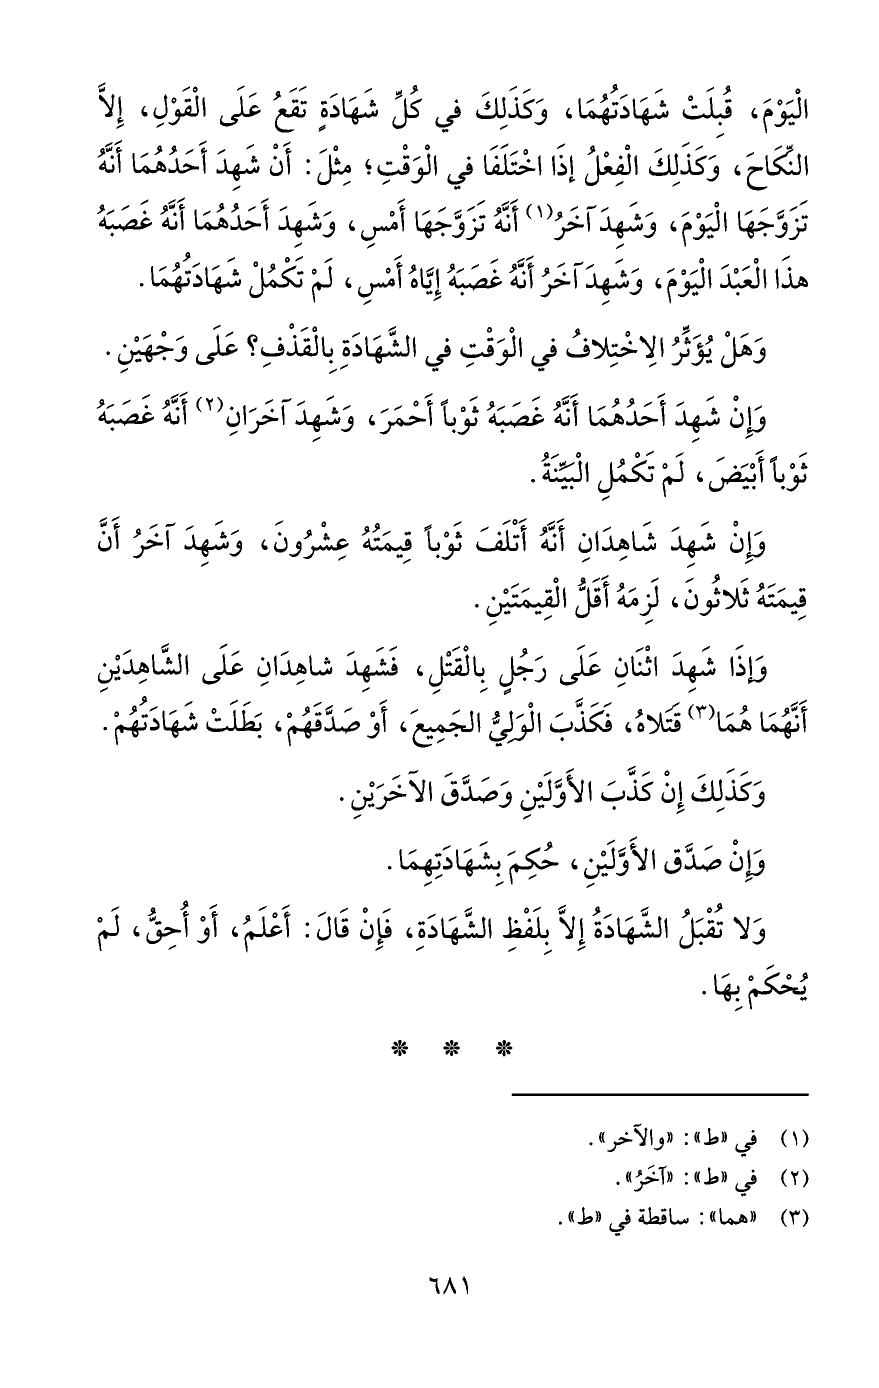 الْيَوْمَ، قُبِلَتْ شَهَادَتُهُمَا، وَكَذَلِكَ في كُلِّ شَهَادَةٍ تَقَعُ عَلَى الْقَوْلِ، إلاَّ
النِّكَاحَ، وَكَذَلِكَ الْفِعْلُ إذَا اخْتَلَفَا في الْوَقْتِ؛ مِثْلَ: أَنْ شَهِدَ أَحَدُهُمَا أَنَّهُ
تَزَوَّجَهَا الْيَوْمَ، وَشَهِدَ آخَرُ(١) أَنَّهُ تَزَوَّجَهَا أَمْسِ، وَشَهِدَ أَحَدُهُمَا أَنَّهُ غَصَبَهُ
هذَا الْعَبْدَ الْيَوْمَ، وَشَهِدَ آخَرُ أَنَّهُ غَصَبَهُ إيَّاهُ أَمْسِ، لَمْ تَكْمُلْ شَهَادَتُهُمَا.
وَهَلْ يُؤَثِّرُ الِاخْتِلافُ في الْوَقْتِ في الشَّهَادَةِ بِالْقَذْفِ؟ عَلَى وَجْهَيْنِ.
وَإِنْ شَهِدَ أَحَدُهُمَا أَنَّهُ غَصَبَهُ ثَوْباً أَحْمَرَ، وَشَهِدَ آخَرَانِ(٢) أَنَّهُ غَصَبَهُ
ثَوْباً أَبْيَضَ، لَمْ تَكْمُلِ الْبَيِّنَةُ.
وَإِنْ شَهِدَ شَاهِدَانِ أَنَّهُ أَتْلَفَ ثَوْباً قِيمَتُهُ عِشْرُونَ، وَشَهِدَ آخَرُ أَنَّ
قِيمَتَهُ ثَلاثُونَ، لَزِمَهُ أَقَلُّ الْقِيمَتَيْنِ.
وَإذَا شَهِدَ اثْنَانِ عَلَى رَجُلٍ بِالْقَتْلِ، فَشَهِدَ شاهِدَانِ عَلَى الشَّاهِدَيْنِ
أَنَّهُمَا هُمَا(٣) قَتَلاهُ، فَكَذَّبَ الْوَلِيُّ الجَمِيعَ، أَوْ صَدَّقَهُمْ، بَطَلَتْ شَهَادَتُهُمْ.
وَكَذَلِكَ إنْ كَذَّبَ الأَوَّلَيْنِ وَصَدَّقَ الآخَرَيْنِ.
وَإِنْ صَدَّق الأَوَّلَيْنِ، حُكِمَ بِشَهَادَتِهِمَا.
وَلا تُقْبَلُ الشَّهَادَةُ إلاَّ بِلَفْظِ الشَّهَادَةِ، فَإِنْ قَالَ: أَعْلَمُ، أَوْ أُحِقُّ، لَمْ
يُحْكَمْ بِهَا.
* * *
(١) في «ط»: «والآخر».
(٢) في «ط»: «آخَرُ».
(٣) «هما»: ساقطة في «ط».
٦٨١